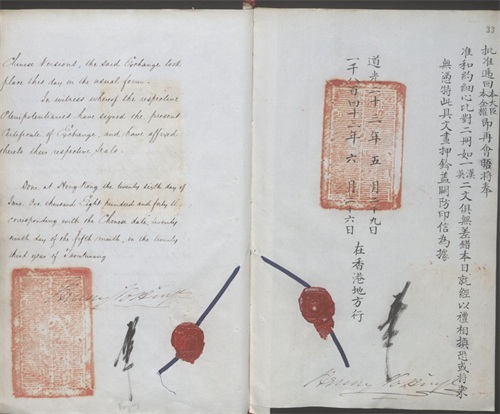 Chinese Versions, the said Exchange took
place this day in the usual form.
In witness whereof the respective
Plenipotentiaries have signed the present
Certificate of Exchange, and have affixed
thereto their respective Seals.
Done at Hong Kong the twenty sixth day of
June, One thousand Eight hundred and forty three
corresponding with the Chinese date, twenty
ninth day of the fifth month, in the twenty
third year of Taoukwang
Henry Pottinger
33
批准 即再會晤將奉
准和約細心比對二冊如一漢英二文俱無差錯本日就經以禮相換恐或將來
無憑特此具文畫押鈐蓋關防印信為據
道光二十三年五月二十九日
一千八百四十三年六月二十六日
在香港地方行
Henry Pottinger